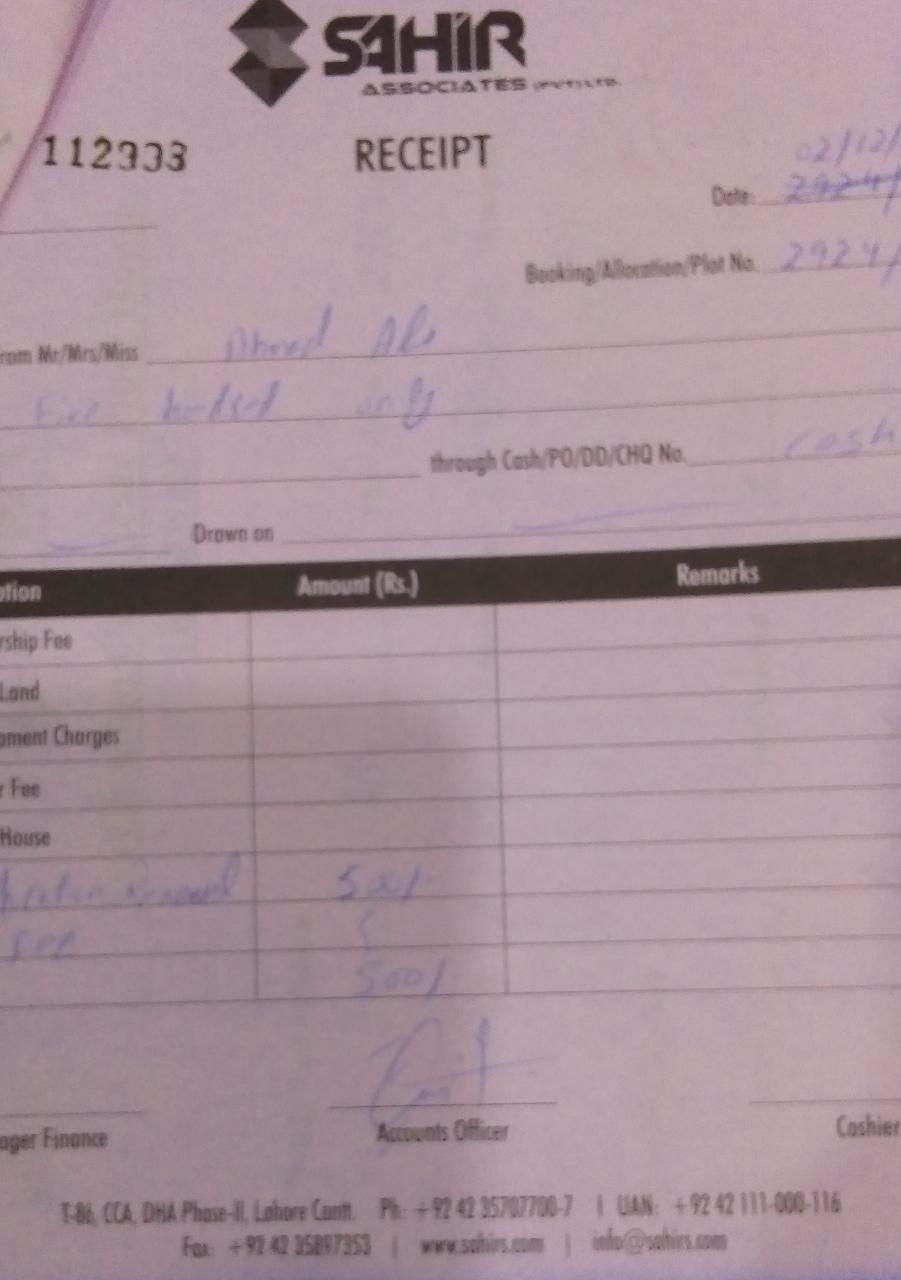 SAHIR
ASSOCIATES (PVT) LTD.
112933 RECEIPT
02/12/
Date:
Booking/Allocation/Plot No. 2924/
rom Mr/Mrs/Miss Ahmed Ali
Five hundred only
through Cash/PO/DD/CHQ No. cash
Drawn on
ption Amount (Rs.) Remarks
rship Fee
Land
pment Charges
r Fee
House
Renewal 500/-
Fee
500/
ager Finance Accounts Officer Cashier
T-86, CCA, DHA Phase-II, Lahore Cantt. Ph: +92 42 35707700-7 | UAN: +92 42 111-000-116
Fax: +92 42 35897353 | www.sahirs.com | info@sahirs.com